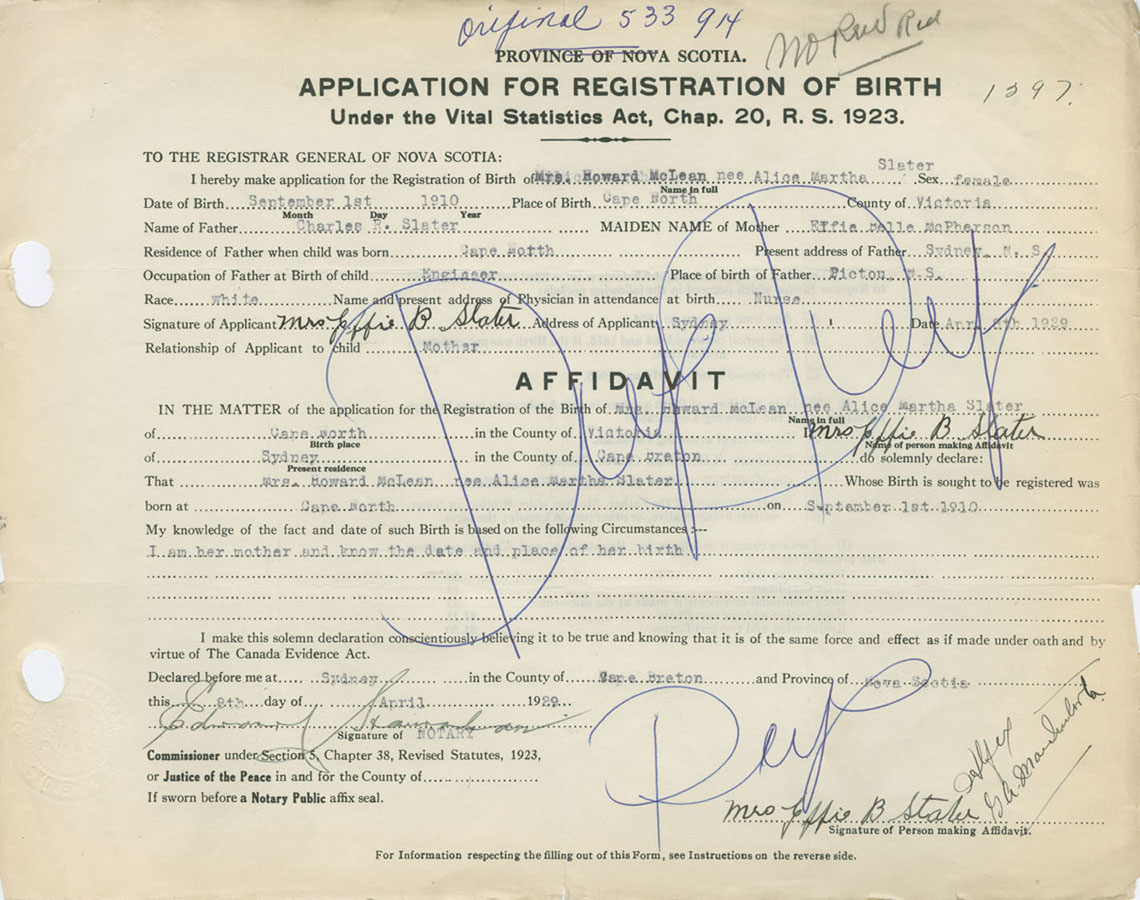 Original 533 914
PROVINCE OF NOVA SCOTIA.
APPLICATION FOR REGISTRATION OF BIRTH
1397.
Under the Vital Statistics Act, Chap. 20, R. S. 1923.
TO THE REGISTRAR GENERAL OF NOVA SCOTIA:
I hereby make application for the Registration of Birth of Mrs. Howard McLean nee Alice Martha Slater Sex female
Name in full
Date of Birth September 1st 1910 Place of Birth Cape North County of Victoria
Month Day Year
Name of Father Charles R. Slater MAIDEN NAME of Mother Effie Belle McPherson
Residence of Father when child was born Cape North Present address of Father Sydney, N. S.
Occupation of Father at Birth of child Engineer Place of birth of Father Pictou N.S.
Race white Name and present address of Physician in attendance at birth Nurse
Signature of Applicant Mrs Effie B Slater Address of Applicant Sydney Date April 8th 1929
Relationship of Applicant to child Mother
AFFIDAVIT
IN THE MATTER of the application for the Registration of the Birth of Mrs. Howard McLean nee Alice Martha Slater
Name in full
of Cape North in the County of Victoria I Mrs Effie B Slater
Birth place Name of person making Affidavit
of Sydney in the County of Cape Breton do solemnly declare:
Present residence
That Mrs. Howard McLean nee Alice Martha Slater Whose Birth is sought to be registered was
born at Cape North on September 1st 1910
My knowledge of the fact and date of such Birth is based on the following Circumstances:—
I am her mother and know the date and place of her birth
I make this solemn declaration conscientiously believing it to be true and knowing that it is of the same force and effect as if made under oath and by
virtue of The Canada Evidence Act.
Declared before me at Sydney in the County of Cape Breton and Province of Nova Scotia
this 8th day of April 1929
Signature of NOTARY
Commissioner under Section 5, Chapter 38, Revised Statutes, 1923,
or Justice of the Peace in and for the County of
If sworn before a Notary Public affix seal.
Mrs Effie B Slater
Signature of Person making Affidavit.
For Information respecting the filling out of this Form, see Instructions on the reverse side.